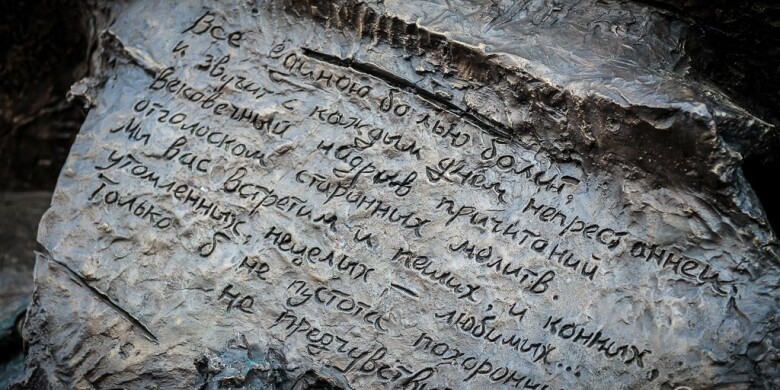 Всё единою болью болит,
и звучит с каждым днём непрестанней
вековечный надрыв причитаний
отголоском старинных молитв.
Мы вас встретим и пеших, и конных,
утомленных, нецелых – любимых...
Только б не пустота похоронных
не предчувствие